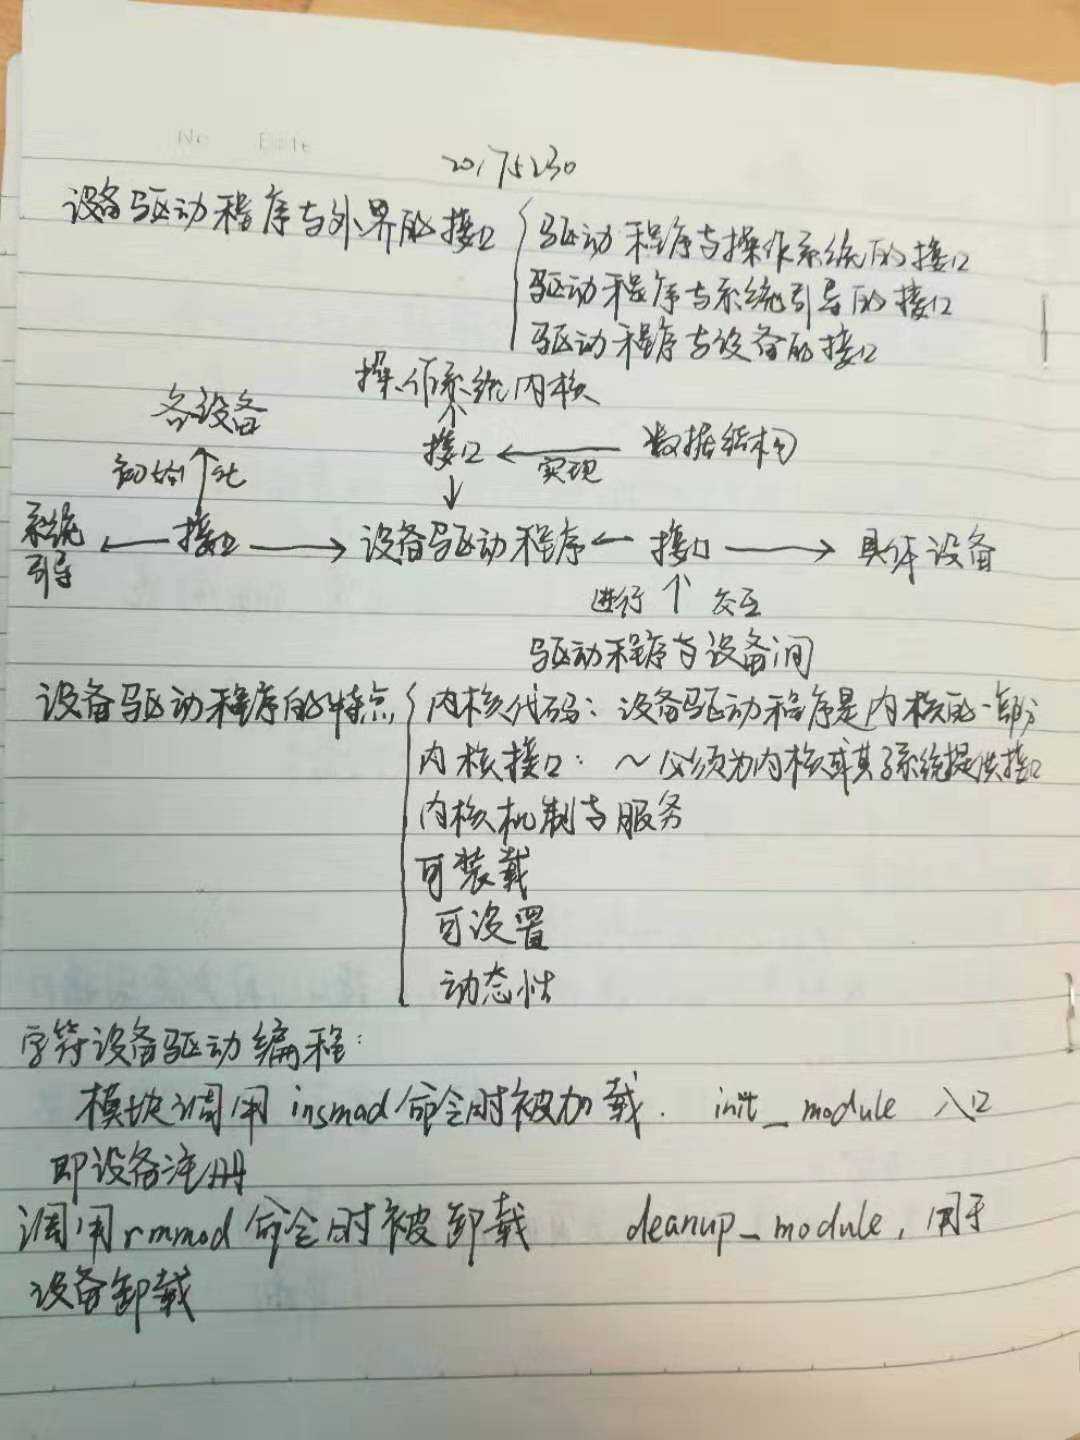 No Date
20175230
设备驱动程序与外界的接口
驱动程序与操作系统的接口
驱动程序与系统引导的接口
驱动程序与设备的接口
操作系统内核
各设备
接口 ← 数据结构
实现
初始 ↑ 化
系统引导 ← 接口 → 设备驱动程序 ← 接口 → 具体设备
进行 ↑ 交互
驱动程序与设备间
设备驱动程序的特点
内核代码：设备驱动程序是内核的一部分
内核接口：～必须为内核或其子系统提供接口
内核机制与服务
可装载
可设置
动态性
字符设备驱动编程：
模块调用insmad命令时被加载. init_module 入口
即设备注册
调用rmmod命令时被卸载 cleanup_module, 用于
设备卸载